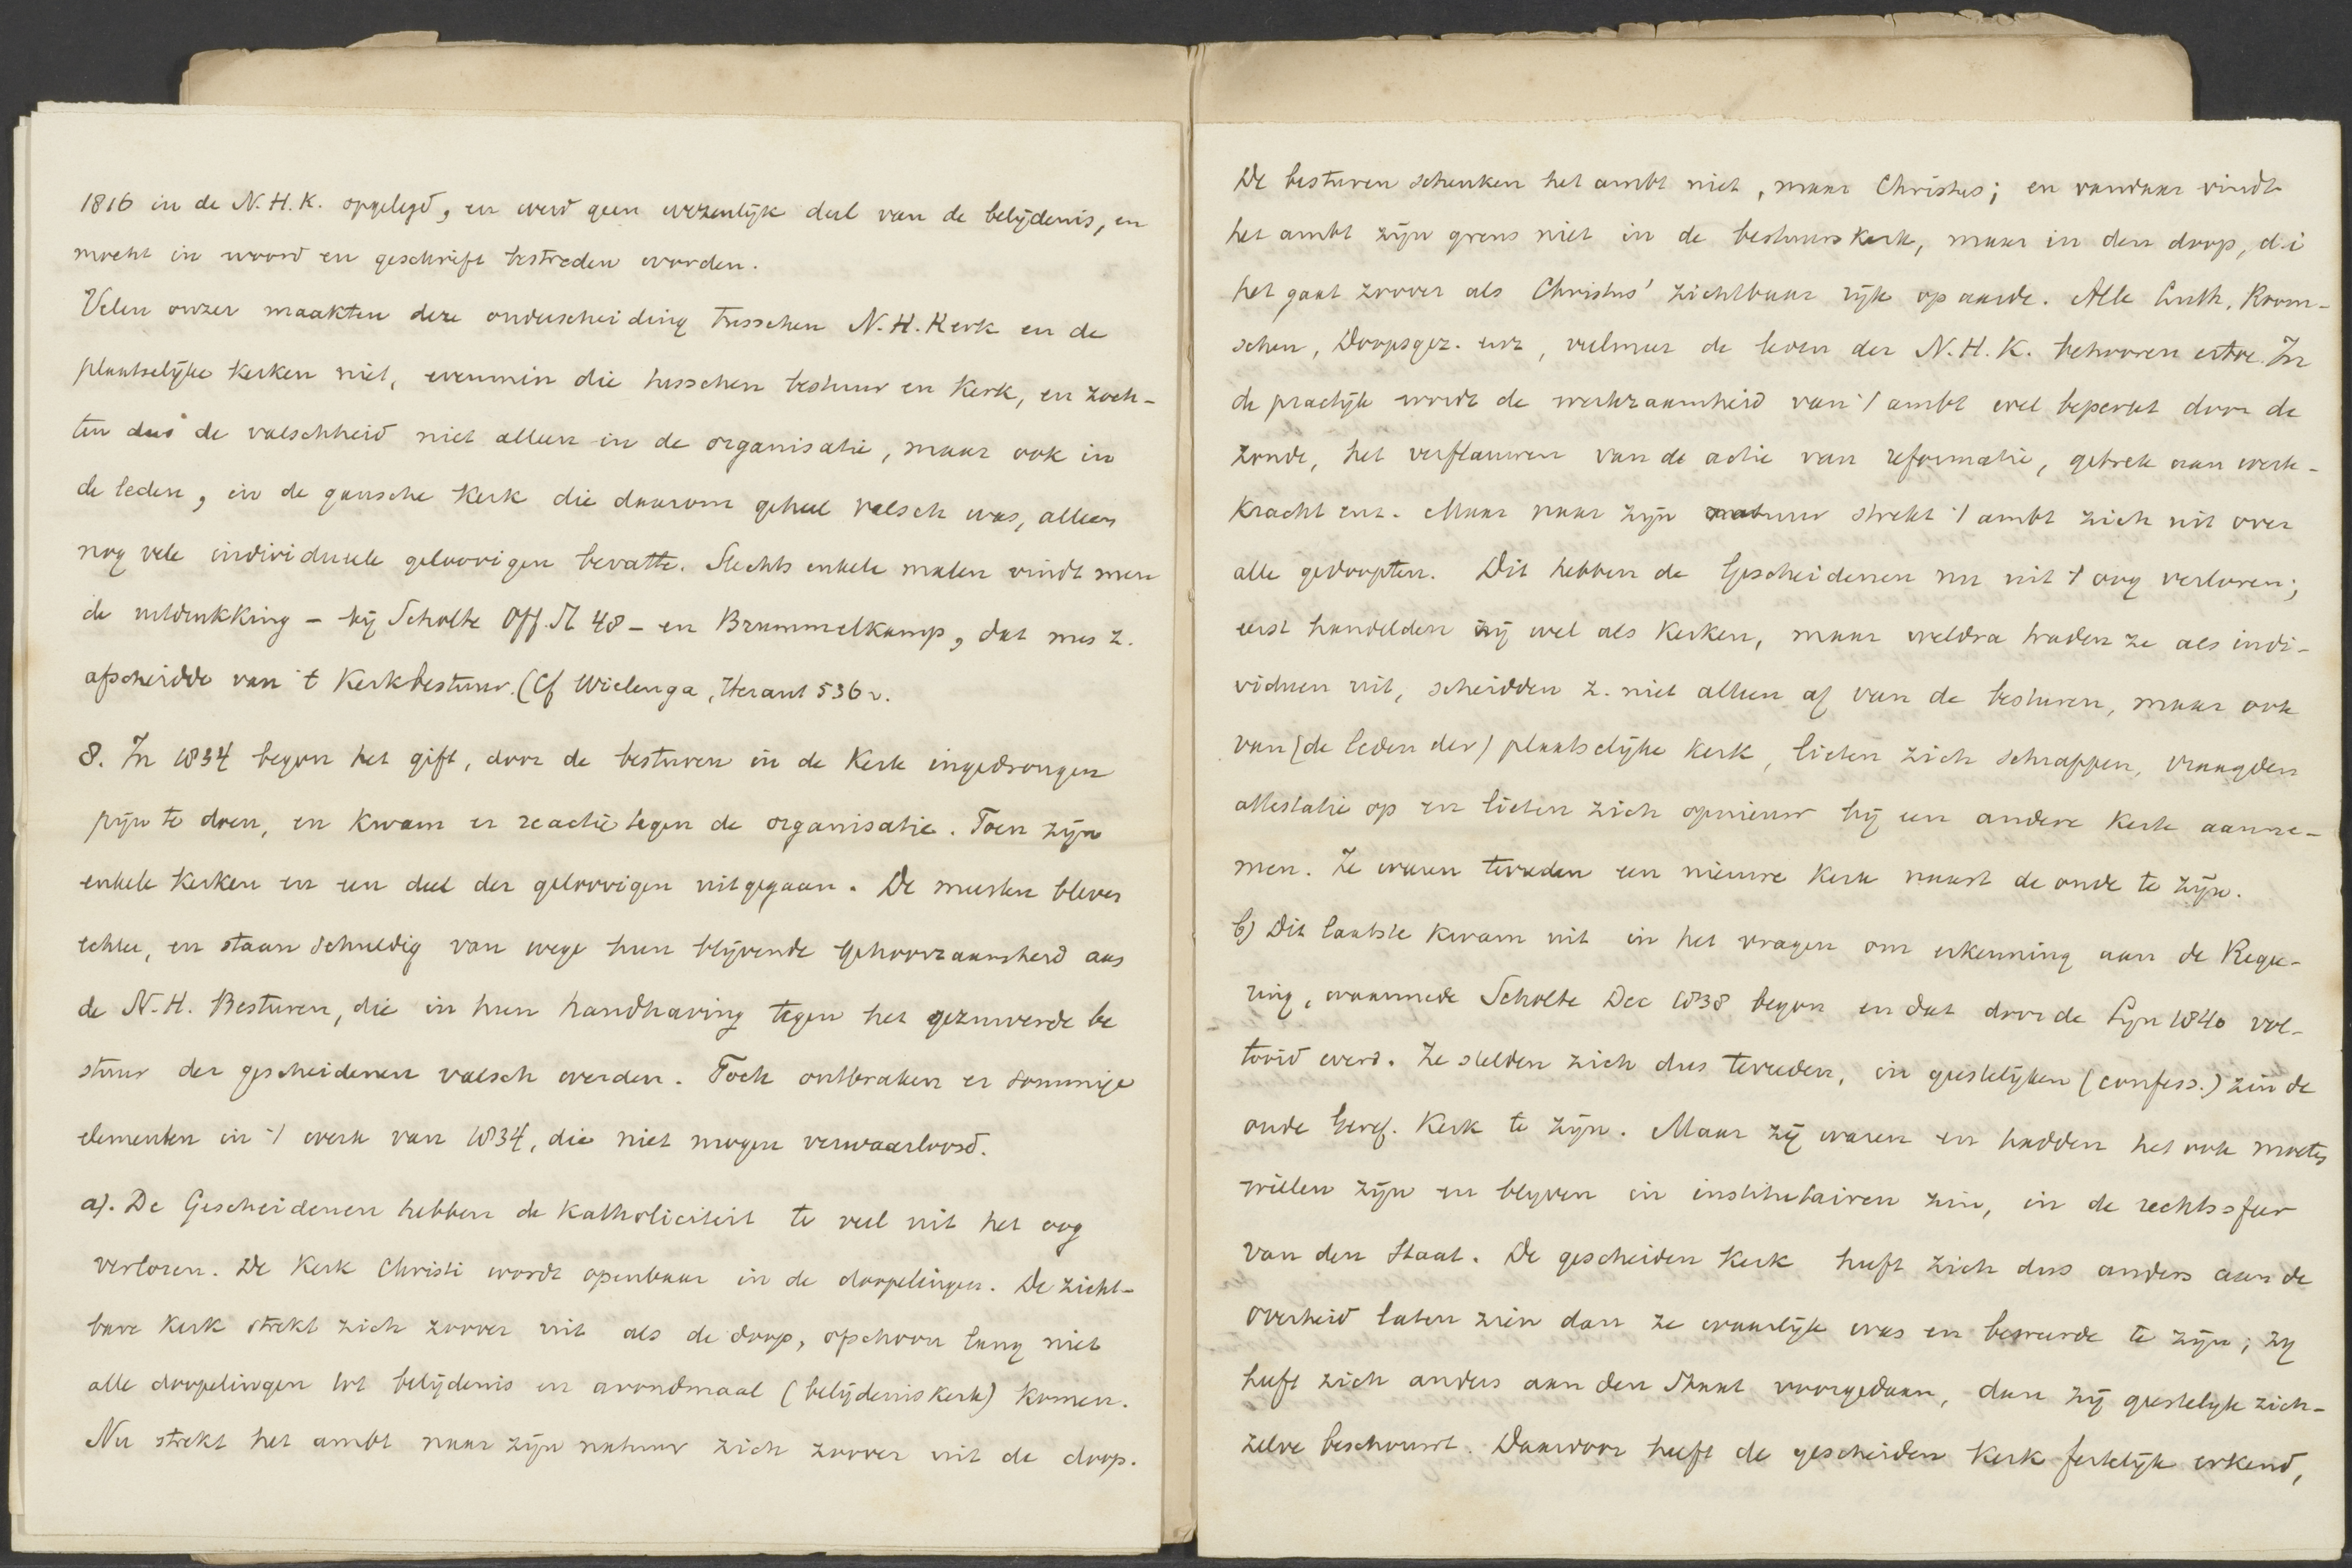 1816 in de N.H.K. opgelegd, en werd geen wezenlijk deel van de belijdenis, en
mocht in woord en geschrift bestreden worden.
Velen onzer maakten deze onderscheiding tusschen N.H. Kerk en de
plaatselijke kerken niet, evenmin die tusschen bestuur en Kerk, en zoch-
ten dus de valschheid niet alleen in de organisatie, maar ook in
de leden, in de gansche Kerk die daarom geheel valsch was, alleen
nog vele individueele geloovigen bevatte. Slechts enkele malen vindt men
de uitdrukking - bij Scholte Off. St 48 - en Brummelkamp, dat men z.
afscheidde van 't Kerkbestuur. (Cf Wielenga, Heraut 536 v.
8. In 1834 begon het gift, door de besturen in de Kerk ingedrongen
pijn te doen, en kwam er reactie tegen de organisatie. Toen zijn
enkele Kerken en een deel der geloovigen uitgegaan. De meesten bleven
echter, en staan schuldig van wege hun blijvende gehoorzaamheid aan
de N.H. Besturen, die in hun handhaving tegen het gezuiverde be
stuur der gescheidenen valsch werden. Toch ontbraken er sommige
elementen in 't werk van 1834, die niet mogen verwaarloosd.
a). De Gescheidenen hebben de Katholiciteit te veel uit het oog
verloren. De Kerk Christi wordt openbaar in de doopelingen. De zicht-
bare Kerk strekt zich zoover uit als de doop, ofschoon lang niet
alle doopelingen tot belijdenis en avondmaal (belijdeniskerk) komen.
Nu strekt het ambt naar zijn natuur zich zoover uit de doop.
De besturen schenken het ambt niet, maar Christus; en vandaar vindt
het ambt zijn grens niet in de bestuurskerk, maar in den doop, d.i
het gaat zoover als Christus' zichtbaar rijk op aarde. Alle Luth. Room-
schen, Doopsgez. enz, veelmeer de leden der N.H.K. behooren ertoe. In
de practijk wordt de werkzaamheid van 't ambt wel beperkt door de
zonde, het verflauwen van de actie van reformatie, gebrek aan werk-
kracht enz. Maar naar zijn natuur strekt 't ambt zich uit over
alle gedoopten. Dit hebben de Gescheidenen nu uit 't oog verloren;
eerst handelden zij wel als Kerken, maar weldra traden ze als indi-
viduen uit, scheidden z. niet alleen af van de besturen, maar ook
van (de leden der) plaatselijke Kerk, lieten zich schrappen, vraagden
attestatie op en lieten zich opnieuw bij een andere Kerk aanne-
men. Ze waren tevreden een nieuwe Kerk naast de oude te zijn.
b) Dit laatste kwam uit in het vragen om erkenning aan de Regee-
ring, waarmede Scholte Dec 1838 begon en dat door de Syn 1840 vol-
tooid werd. Ze stelden zich dus tevreden, in geestelijken (confess.) zin de
oude Geref. Kerk te zijn. Maar zij waren en hadden het ook moeten
willen zijn en blijven in institutairen zin, in de rechtssfeer
van den Staat. De gescheiden Kerk heeft zich dus anders aan de
overheid laten zien dan ze waarlijk was en beweerde te zijn; zij
heeft zich anders aan den Staat voorgedaan, dan zij geestelijk zich-
zelve beschouwt. Daardoor heeft de gescheiden Kerk feitelijk erkend,